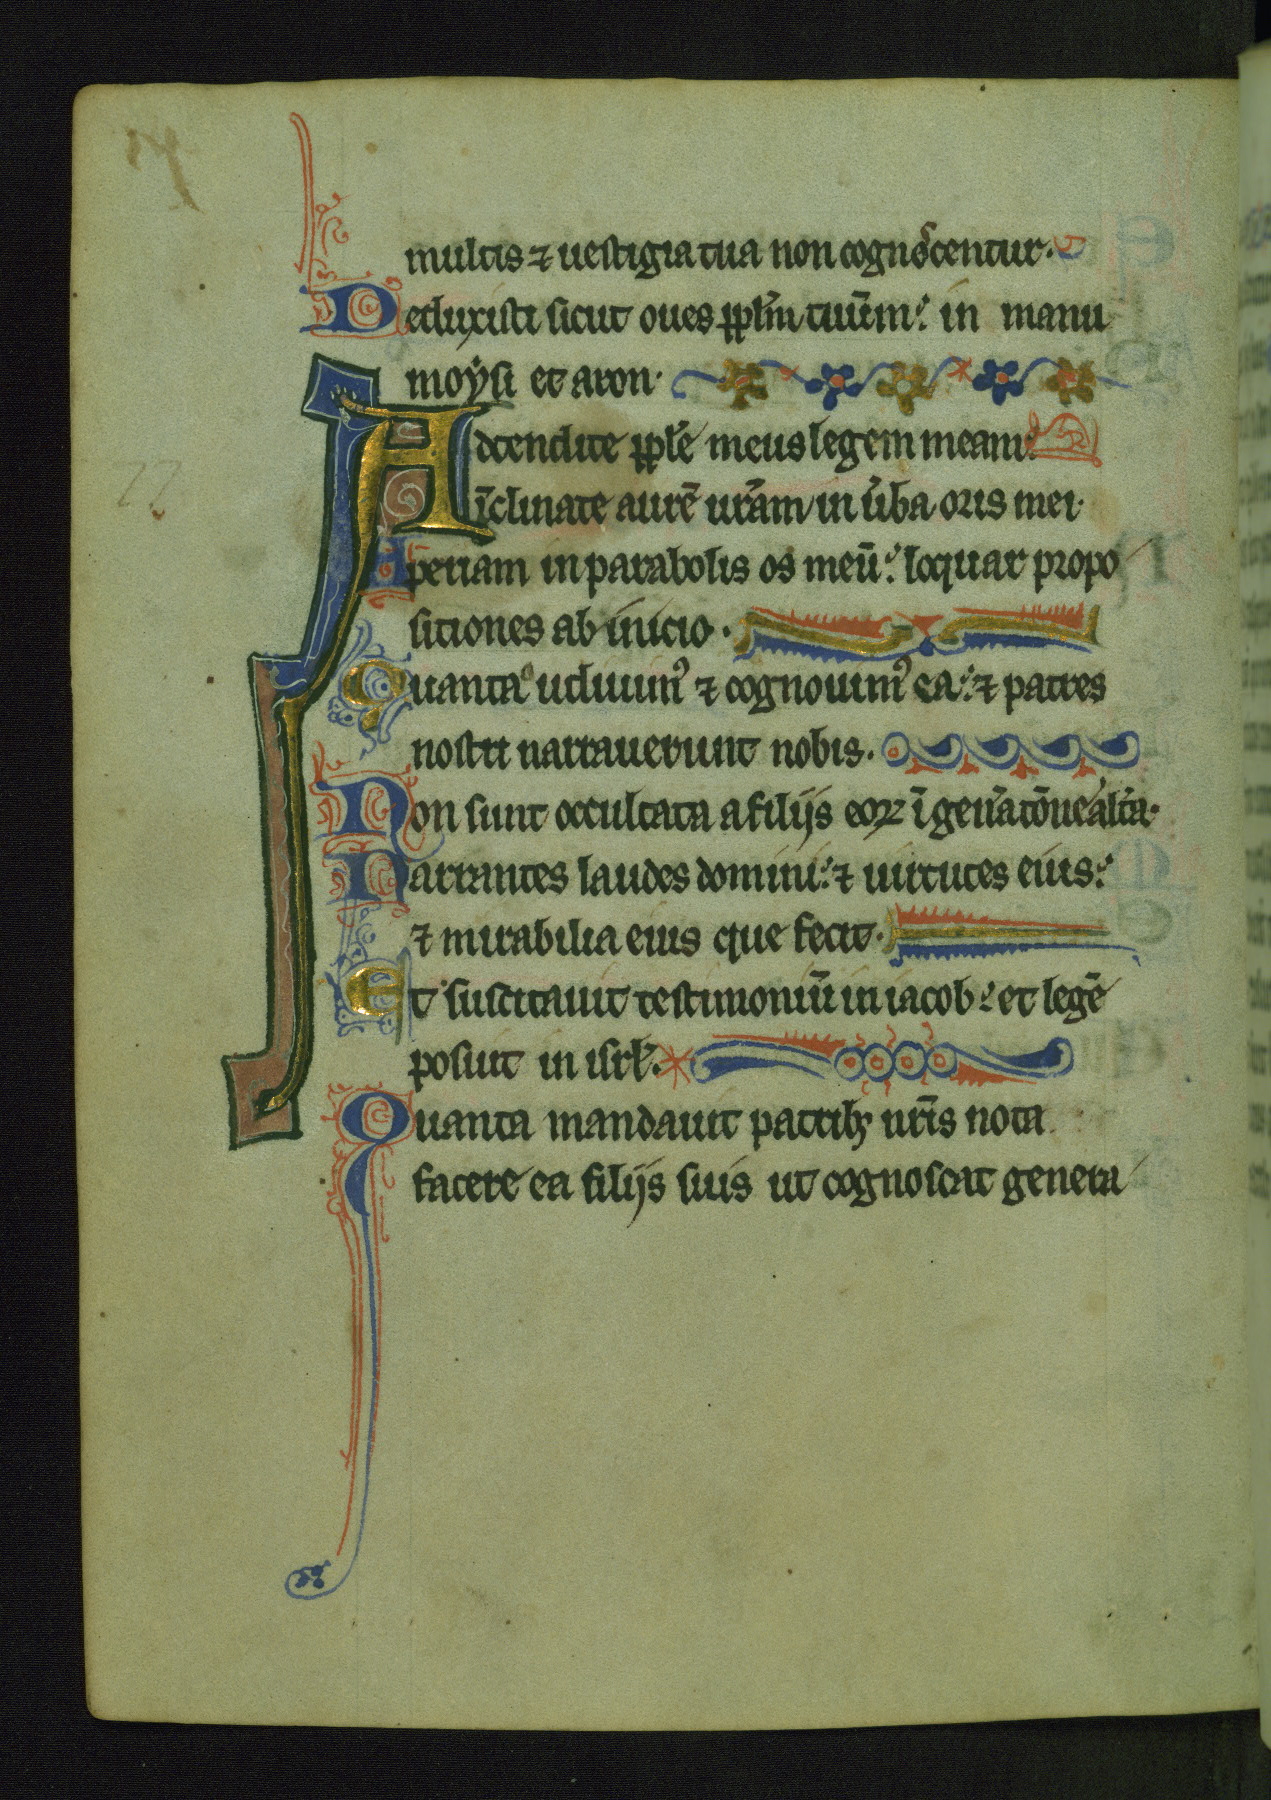 multis ⁊ uestigia tua non cognoscentur.
Deduxisti sicut oues pplm̄ tuūm: in manu
moẏsi et aron.
Adtendite pplē meus legem meam:
īclinate aurē ur̄am in ūba oris mei.
Aperiam in parabolis os meū: loquar propo
sitiones ab inicio.
Quanta udiuimꝰ ⁊ cognouimꝰ ea: ⁊ patres
nostri narrauerunt nobis.
Non sunt occultata a filijs eoꝝ ī gen̄atōne alt̄a.
Narrantes laudes domini: ⁊ uirtutes eius:
⁊ mirabilia eius que fecit.
Et suscitauit testimoniū in iacob: et legē
posuit in isrl̄.
Quanta mandauit patribꝫ nr̄is nota
facere ea filijs suis ut cognoscat genera